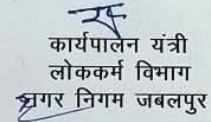 कार्यपालन यंत्री
लोककर्म विभाग
नगर निगम जबलपुर